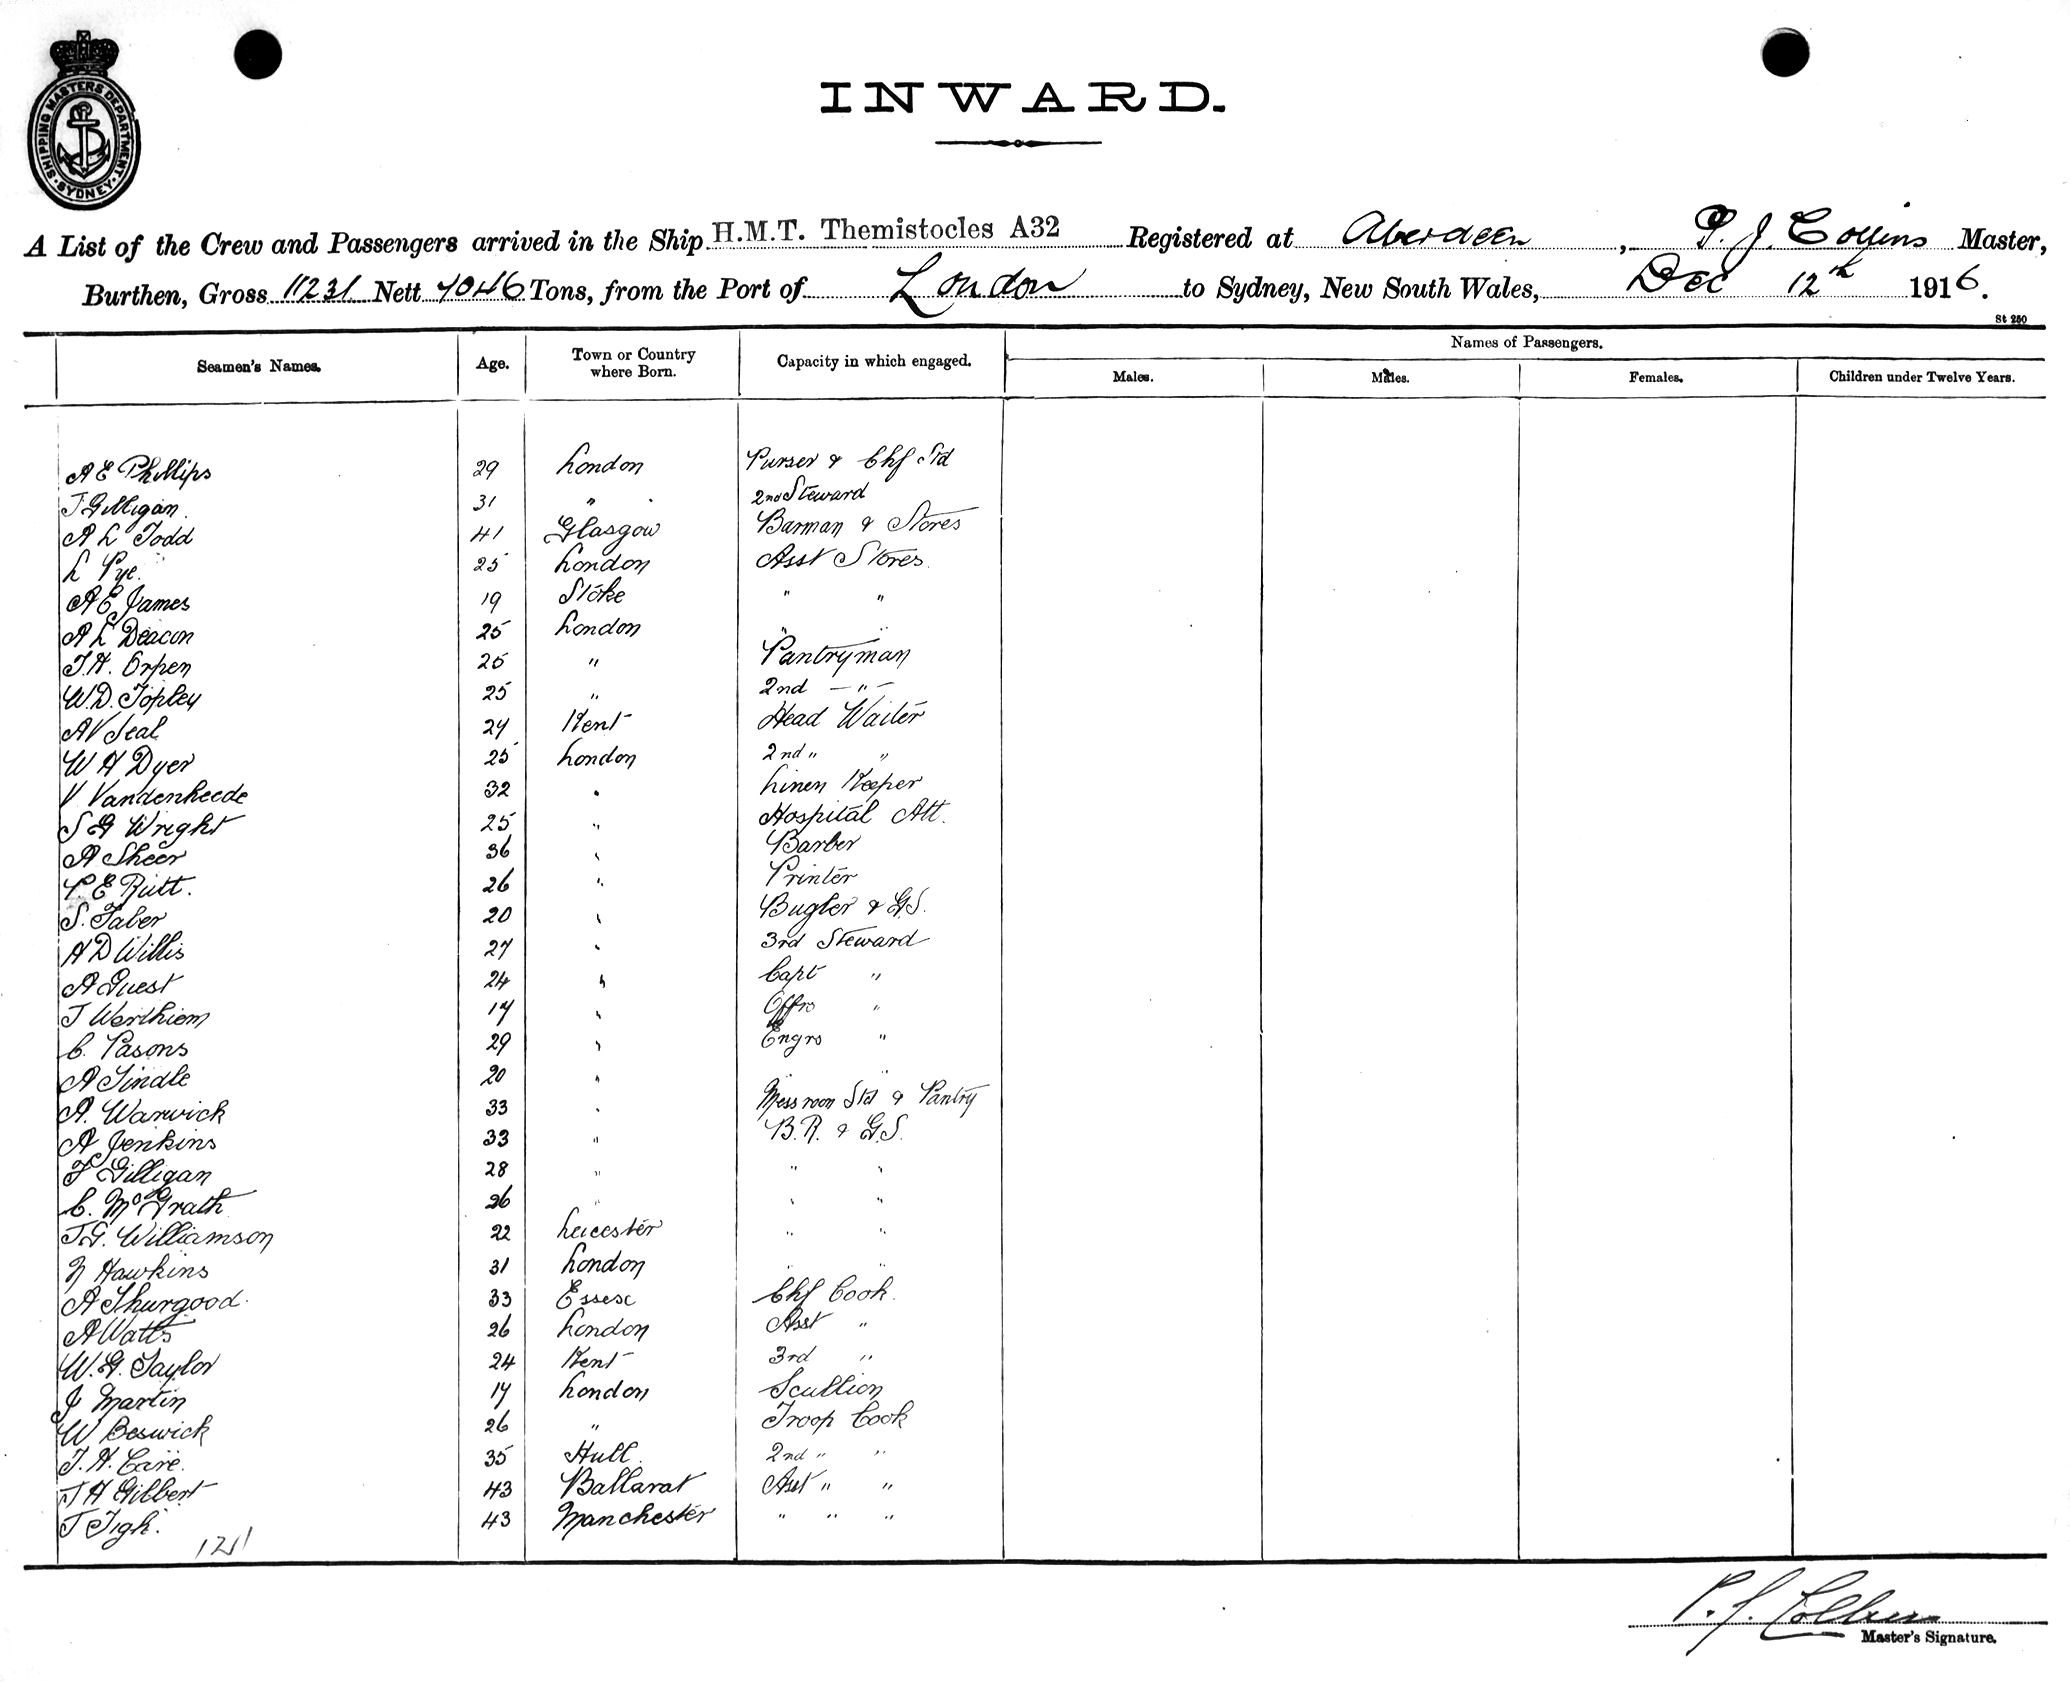 SHIPPING MASTERS DEPARTMENT. SYDNEY
INWARD.
A List of the Crew and Passengers arrived in the Ship H.M.T. Themistocles A32 Registered at Aberdeen, P. J. Collins Master,
Burthen, Gross 11231 Nett 7046 Tons, from the Port of London to Sydney, New South Wales, Dec 12th 1916.
St 250
Seamen's Names. Age. Town or Country where Born. Capacity in which engaged. Names of Passengers.
Males. Males. Females. Children under Twelve Years.
A E Phillips 29 London Purser & Chf Std
J Gilligan. 31 " 2nd Steward
A L Todd 41 Glasgow Barman & Stores
L Pye. 25 London Asst Stores.
A E James 19 Stoke " "
A L Deacon 25 London " "
J. H. Orpen 25 " Pantryman
W. D. Topley 25 " 2nd — " —
A V Seal 27 Kent Head Waiter
W H Dyer 25 London 2nd " "
V Vandenheede 32 " Linen Keeper
S G Wright 25 " Hospital Att.
A Sheer 36 " Barber
P. E Rutt. 26 " Printer
S. Taber 20 " Bugler & G.S.
A D Willis 27 " 3rd Steward
A Guest 24 " Capt "
J Werthiem 17 " Offrs "
C. Pasons 29 " Engrs "
A Tindle 20 " " "
A. Warwick 33 " Messroom Std & Pantry
A Jenkins 33 " B.R. & G.S.
F Gilligan 28 " " "
C. McGrath 26 " " "
J. G. Williamson 22 Leicester " "
N Hawkins 31 London " "
A Thurgood. 33 Essex Chf Cook.
A Watts 26 London Asst "
W. G. Taylor 24 Kent 3rd "
J Martin 17 London Scullion
W Beswick 26 " Troop Cook
J. H. Care. 35 Hull. 2nd " "
J H Gilbert 43 Ballarat Asst " "
J Tigh. 43 Manchester " " "
P. J. Collins
Master's Signature.